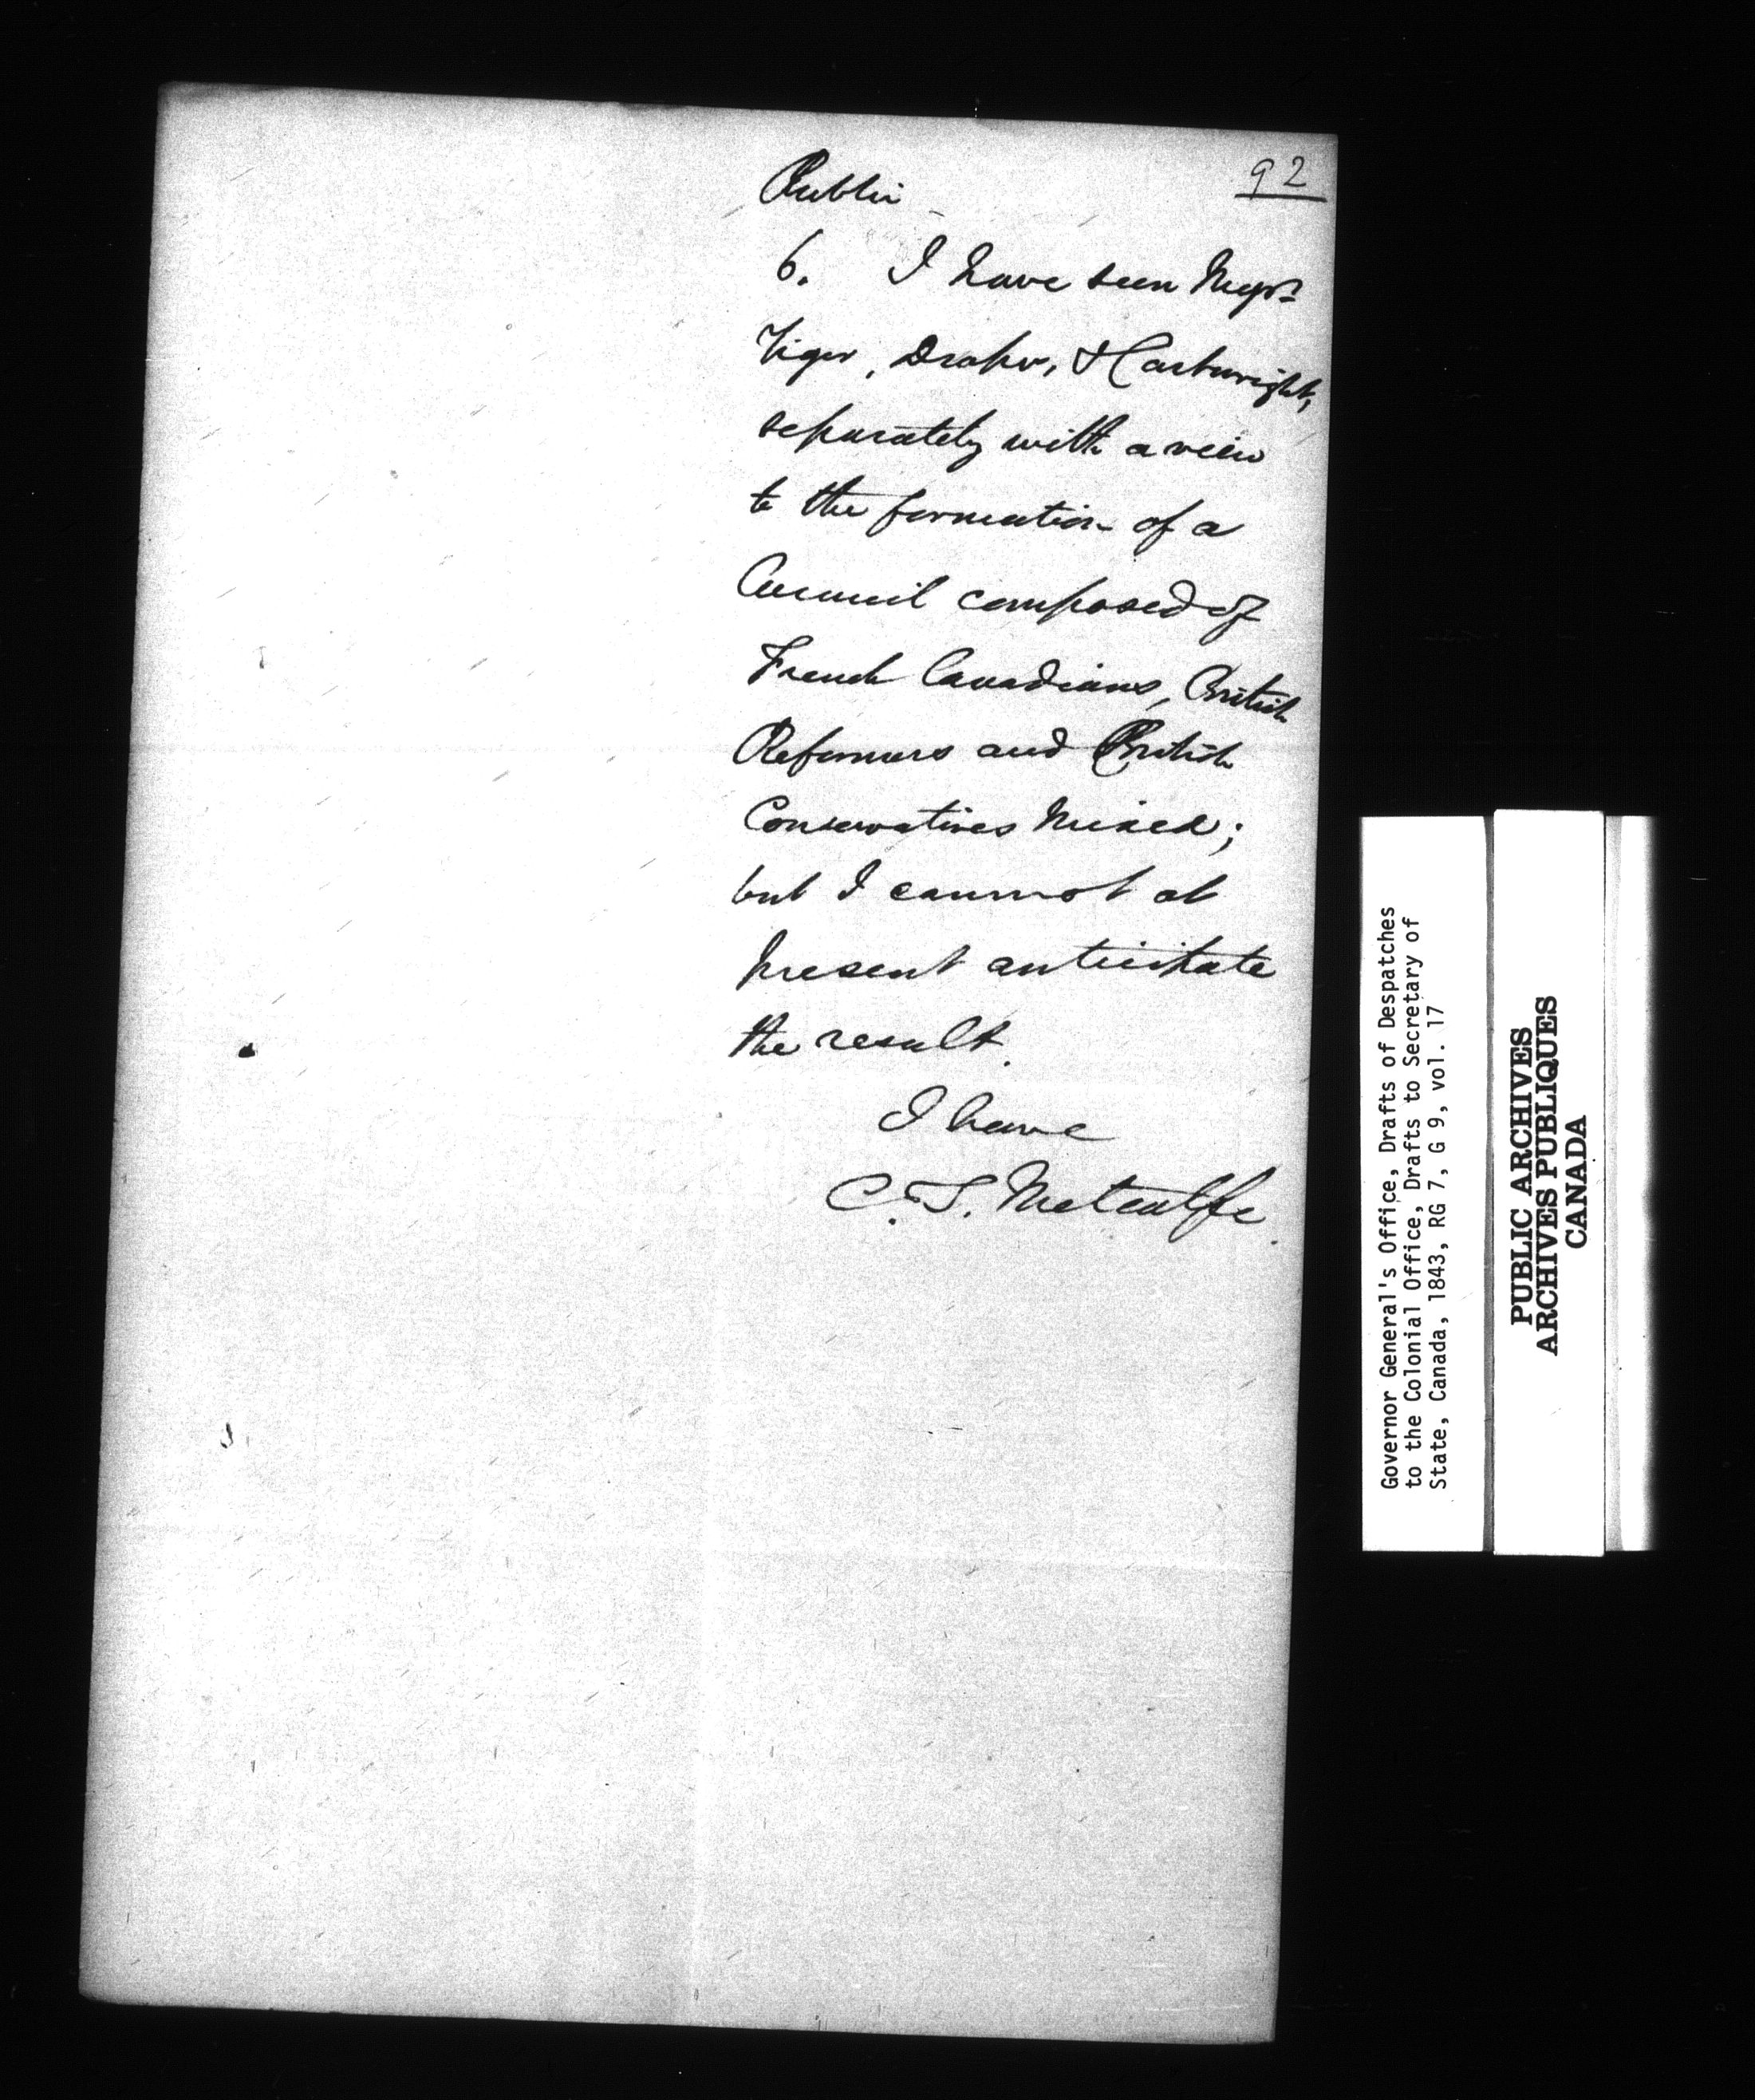 92
Public
6. I have seen Messrs
Viger, Draper, & Cartwright,
separately with a view
to the formation of a
Council composed of
French Canadians, British
Reformers and British
Conservatives mixed;
but I cannot at
present anticipate
the result.
I have
C. T. Metcalfe.
Governor General's Office, Drafts of Despatches
to the Colonial Office, Drafts to Secretary of
State, Canada, 1843, RG 7, G 9, vol. 17
PUBLIC ARCHIVES
ARCHIVES PUBLIQUES
CANADA